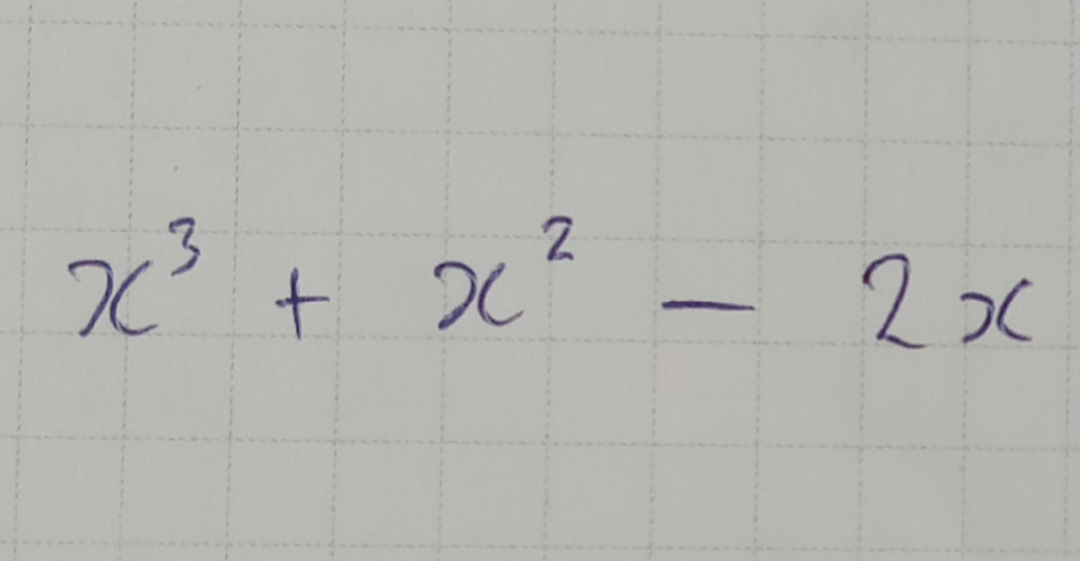 x³ + x² − 2x